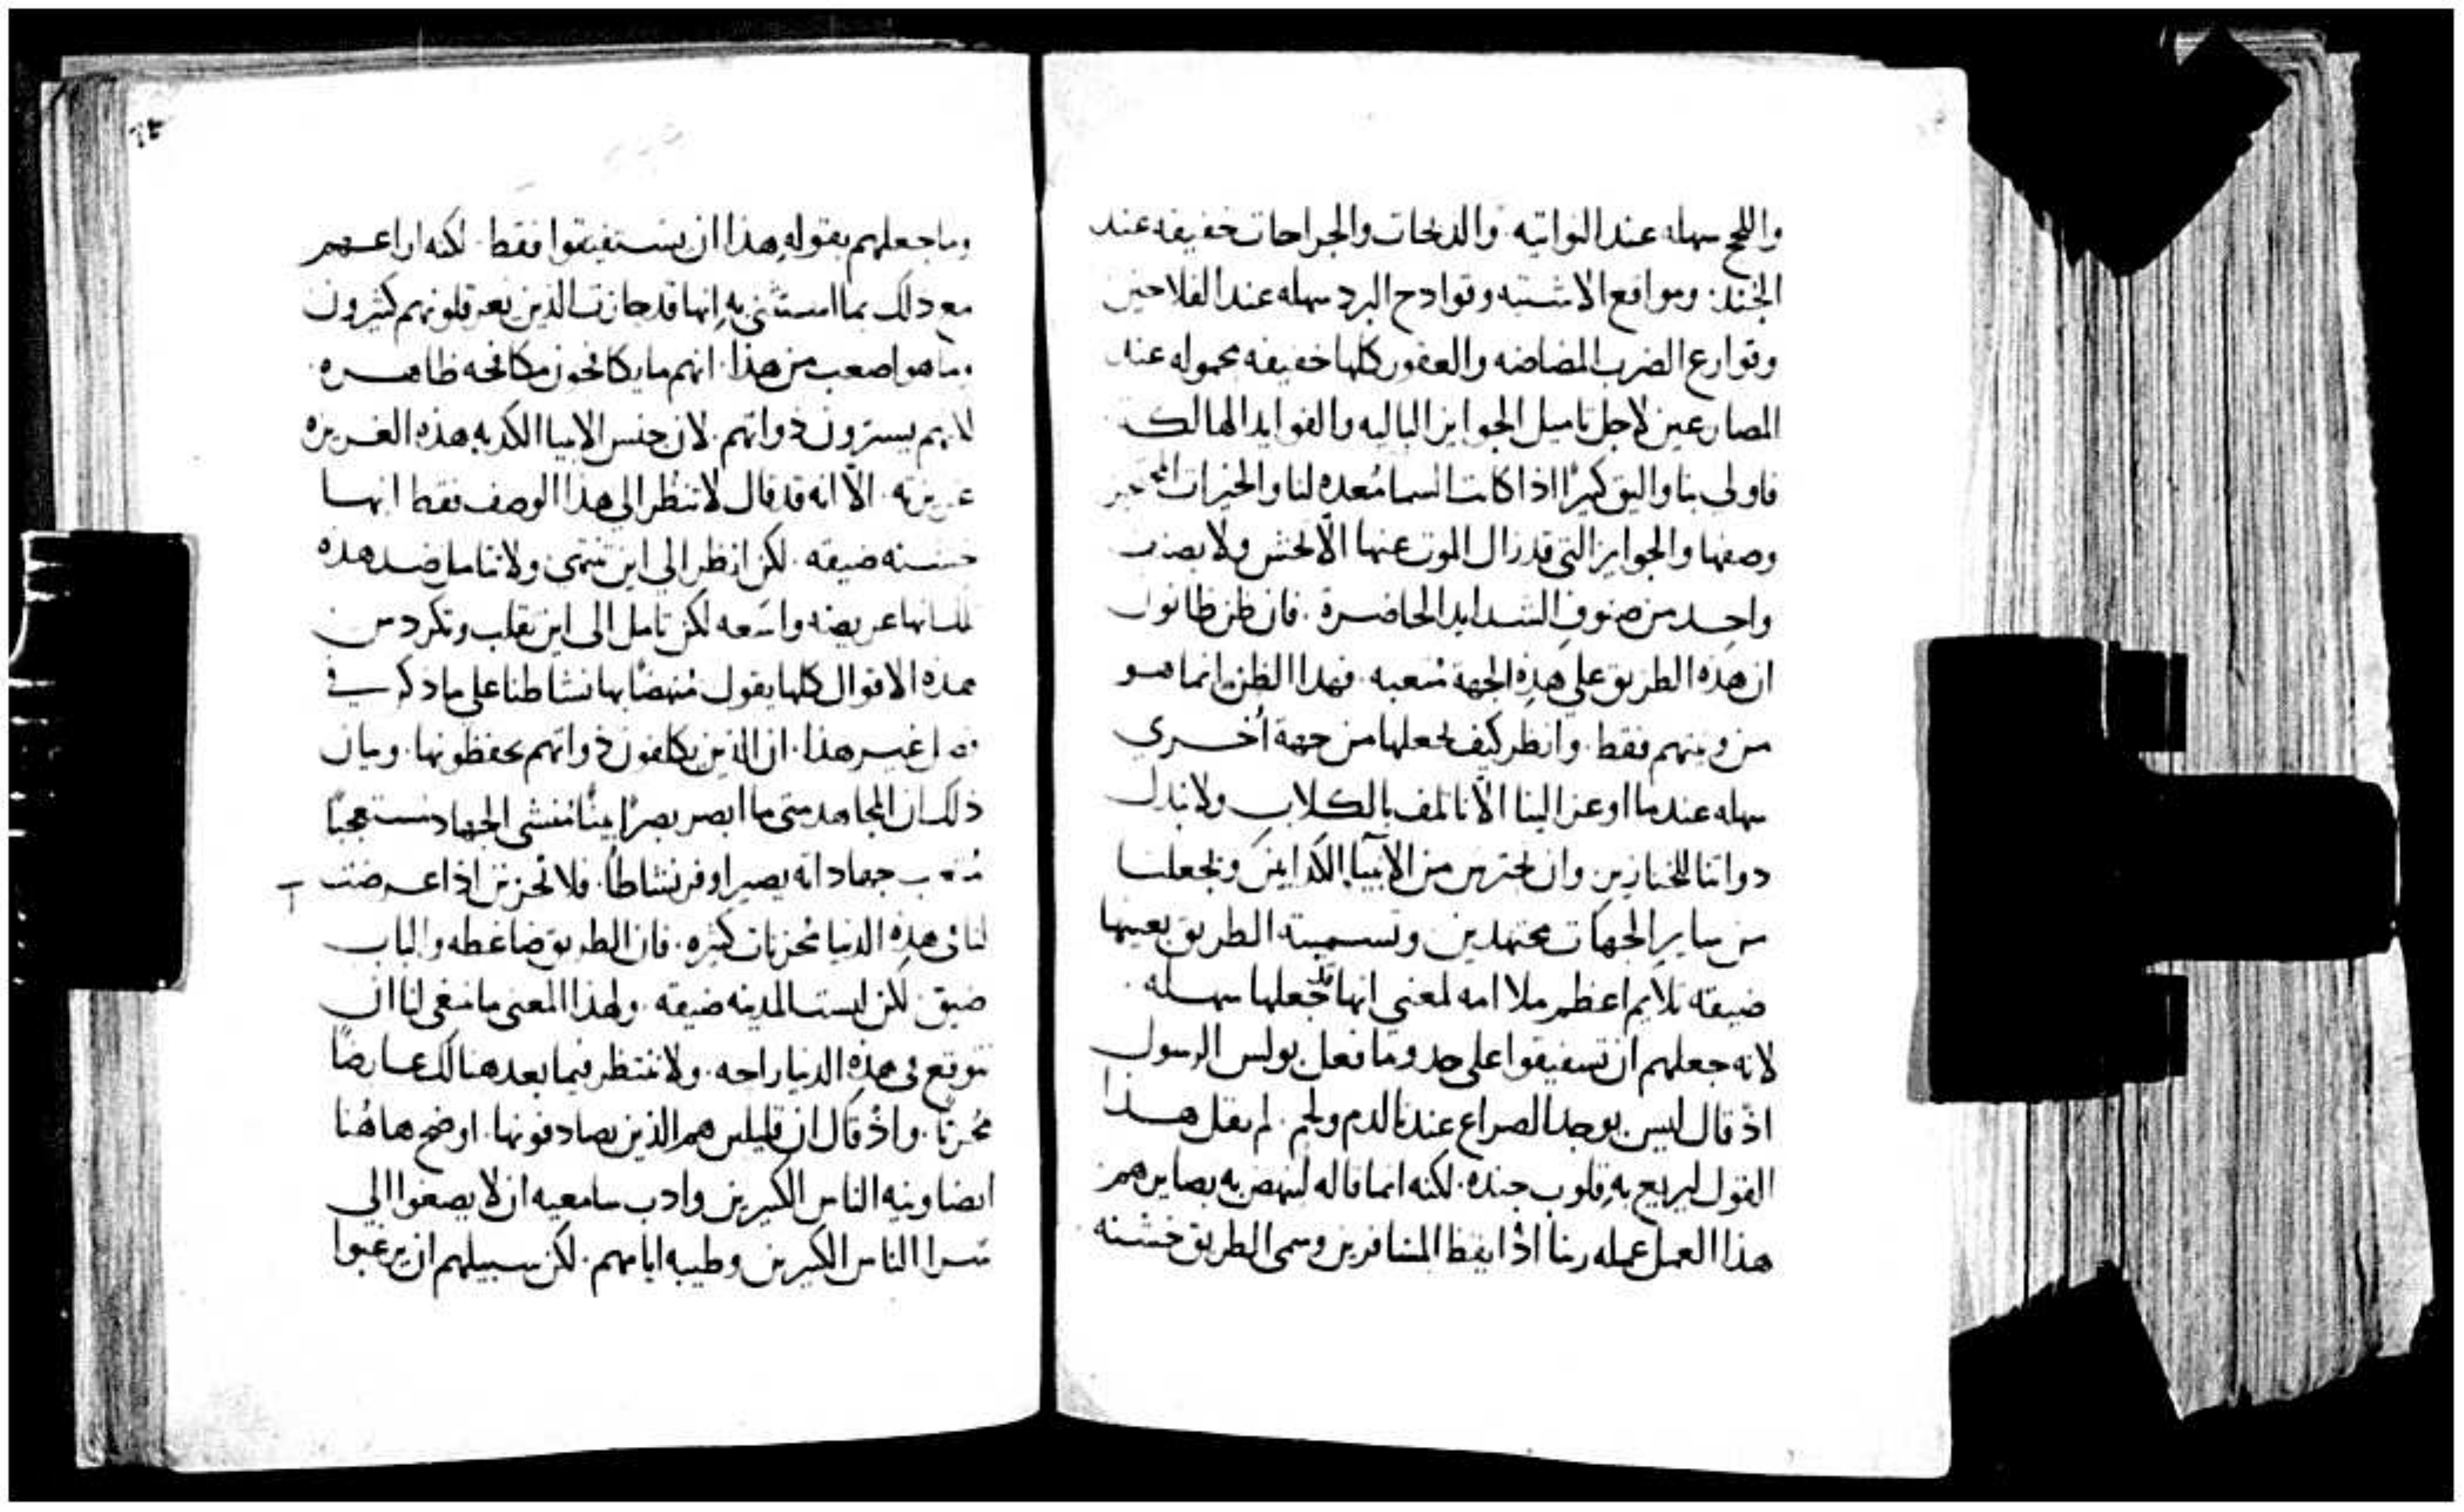 واللجج سهله عند النواتيه. والذبحات والجراحات خفيفه عند
الجند. ومواقع الاشتيه وقوادح البرد سهله عند الفلاحين
وقوارع الضرب المضاضه والعقور كلها خفيفه محموله عند
المصارعين لاجل تاميل الجوايز الباليه والفوايد الهالكه
فاولى بنا واليق كثيرًا اذا كانت السما مُعده لنا والخيرات
وصفها والجوايز التي قد زال الموت عنها الّا نحس ولا بصنف
واحد من صنوف الشدايد الحاضرة. فان ظن ظانون
ان هذه الطريق علي هذه الجهة مُتعبه. فهذا الظن انما هو
من ونيتهم فقط. وانظر كيف يجعلها من جهة اُخرى
سهله عندما اوعز الينا الّا نالف بالكلاب ولا نبدل
دواتنا للخنازير وان نحترس من الانبيا الكدابين ويجعلنا
من ساير الجهات مجتهدين وتسمية الطريق بعينها
ضيقه تلايم اعظم ملاامه لمعني انها تجعلها سهله.
لانه جعلهم ان تستفيقوا على حد وما فعل بولس الرسول
اذ قال ليس يوجد الصراع عندنا لدم ولحم. لم يقل هذا
القول ليريع به قلوب جنده. لكنه انما قاله لينهض به بصايرهم
هذا العمل عمله ربنا اذ ايقظ المسافرين وسمى الطريق خشنه
وما جعلهم بقوله هذا ان يستفيقوا فقط. لكنه اراعهم
مع دلك بما استثنى به انها قد حازت الذين يعرقلونهم كثيرون
وما هو اصعب من هذا. انهم ما يكافحون مكافحه ظاهره.
لانهم يسترون دواتهم. لان جنس الانبيا الكدبه هذه الغريزه
غريزته. الّا انه قد قال لا تنظر الى هذا الوصف فقط انها
خشنه ضيقه. لكن انظر الي اين تنتهى ولا تتامل ضد هذه
انها عريضه واسعه لكن تامل الى اين تقلب وتكردس
هذه الاقوال كلها يقول مُنهضًا بها نشاطنا على ما ذكر في
فصل غير هذا. ان الذين يكلفون ذواتهم يحفظونها. وبيان
ذلك ان المجاهد متى ما ابصر بصرًا بينًا مُنشى الجهاد مستعجبًا
مُتعب جهاداته يصير اوفر نشاطًا. فلا تحزنن اذا عرضت
لنا في هذه الدنيا مُحزنات كثيره. فان الطريق ضاغطه والباب
ضيق. لكن ليست المدينه ضيقه. ولهذا المعنى ما ينبغي لنا ان
نتوقع في هذه الدنيا راحه. ولا ننتظر فيما بعد هنالك عارضًا
مُحزنًا. واذ قال ان قليلين هم الذين يصادفونها. اوضح هاهُنا
ايضا ونيه الناس الكثيرين وادب سامعيه ان لا يصغوا الي
سرا الناس الكثيرين وطيبه ايامهم. لكن سبيلهم ان يرغبوا